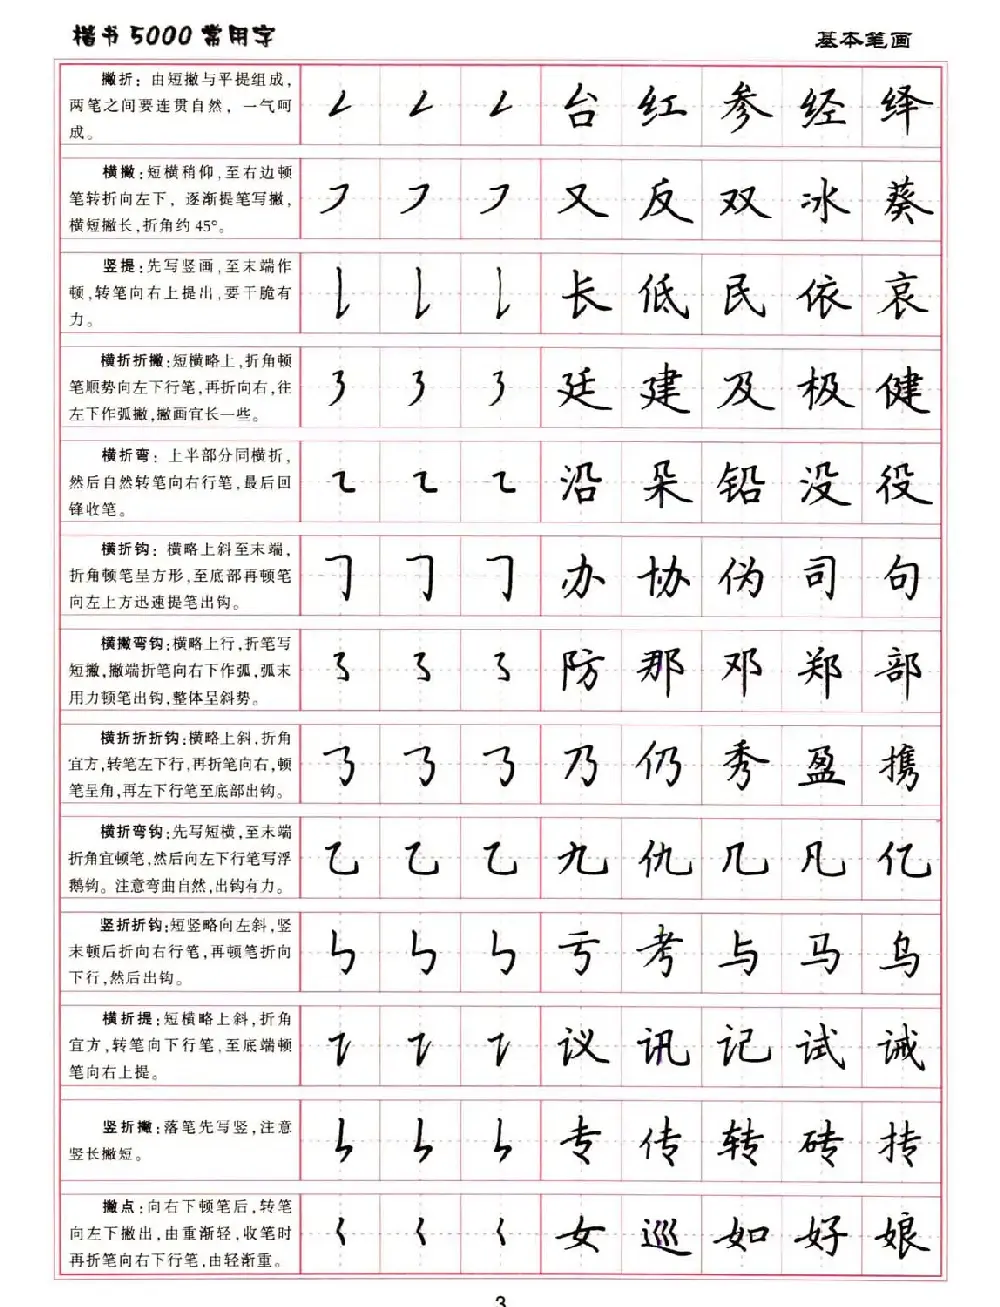 楷书5000常用字
基本笔画
撇折：由短撇与平提组成，
两笔之间要连贯自然，一气呵
成。
台 红 参 经 绎
横撇：短横稍仰，至右边顿
笔转折向左下，逐渐提笔写撇，
横短撇长，折角约45°。
又 反 双 冰 葵
竖提：先写竖画，至末端作
顿，转笔向右上提出，要干脆有
力。
长 低 民 依 哀
横折折撇：短横略上，折角顿
笔顺势向左下行笔，再折向右，往
左下作弧撇，撇画宜长一些。
廷 建 及 极 健
横折弯：上半部分同横折，
然后自然转笔向右行笔，最后回
锋收笔。
沿 朵 铅 没 役
横折钩：横略上斜至末端，
折角顿笔呈方形，至底部再顿笔
向左上方迅速提笔出钩。
办 协 伪 司 句
横撇弯钩：横略上行，折笔写
短撇，撇端折笔向右下作弧，弧末
用力顿笔出钩，整体呈斜势。
防 那 邓 郑 部
横折折折钩：横略上斜，折角
宜方，转笔左下行，再折笔向右，顿
笔呈角，再左下行笔至底部出钩。
乃 仍 秀 盈 携
横折弯钩：先写短横，至末端
折角宜顿笔，然后向左下行笔写浮
鹅钩。注意弯曲自然，出钩有力。
乙 乙 乙 九 仇 几 凡 亿
竖折折钩：短竖略向左斜，竖
末顿后折向右行笔，再顿笔折向
下行，然后出钩。
亏 考 与 马 乌
横折提：短横略上斜，折角
宜方，转笔向下行笔，至底端顿
笔向右上提。
议 讯 记 试 诫
竖折撇：落笔先写竖，注意
竖长撇短。
专 传 转 砖 抟
撇点：向右下顿笔后，转笔
向左下撇出，由重渐轻，收笔时
再折笔向右下行笔，由轻渐重。
女 巡 如 好 娘
3